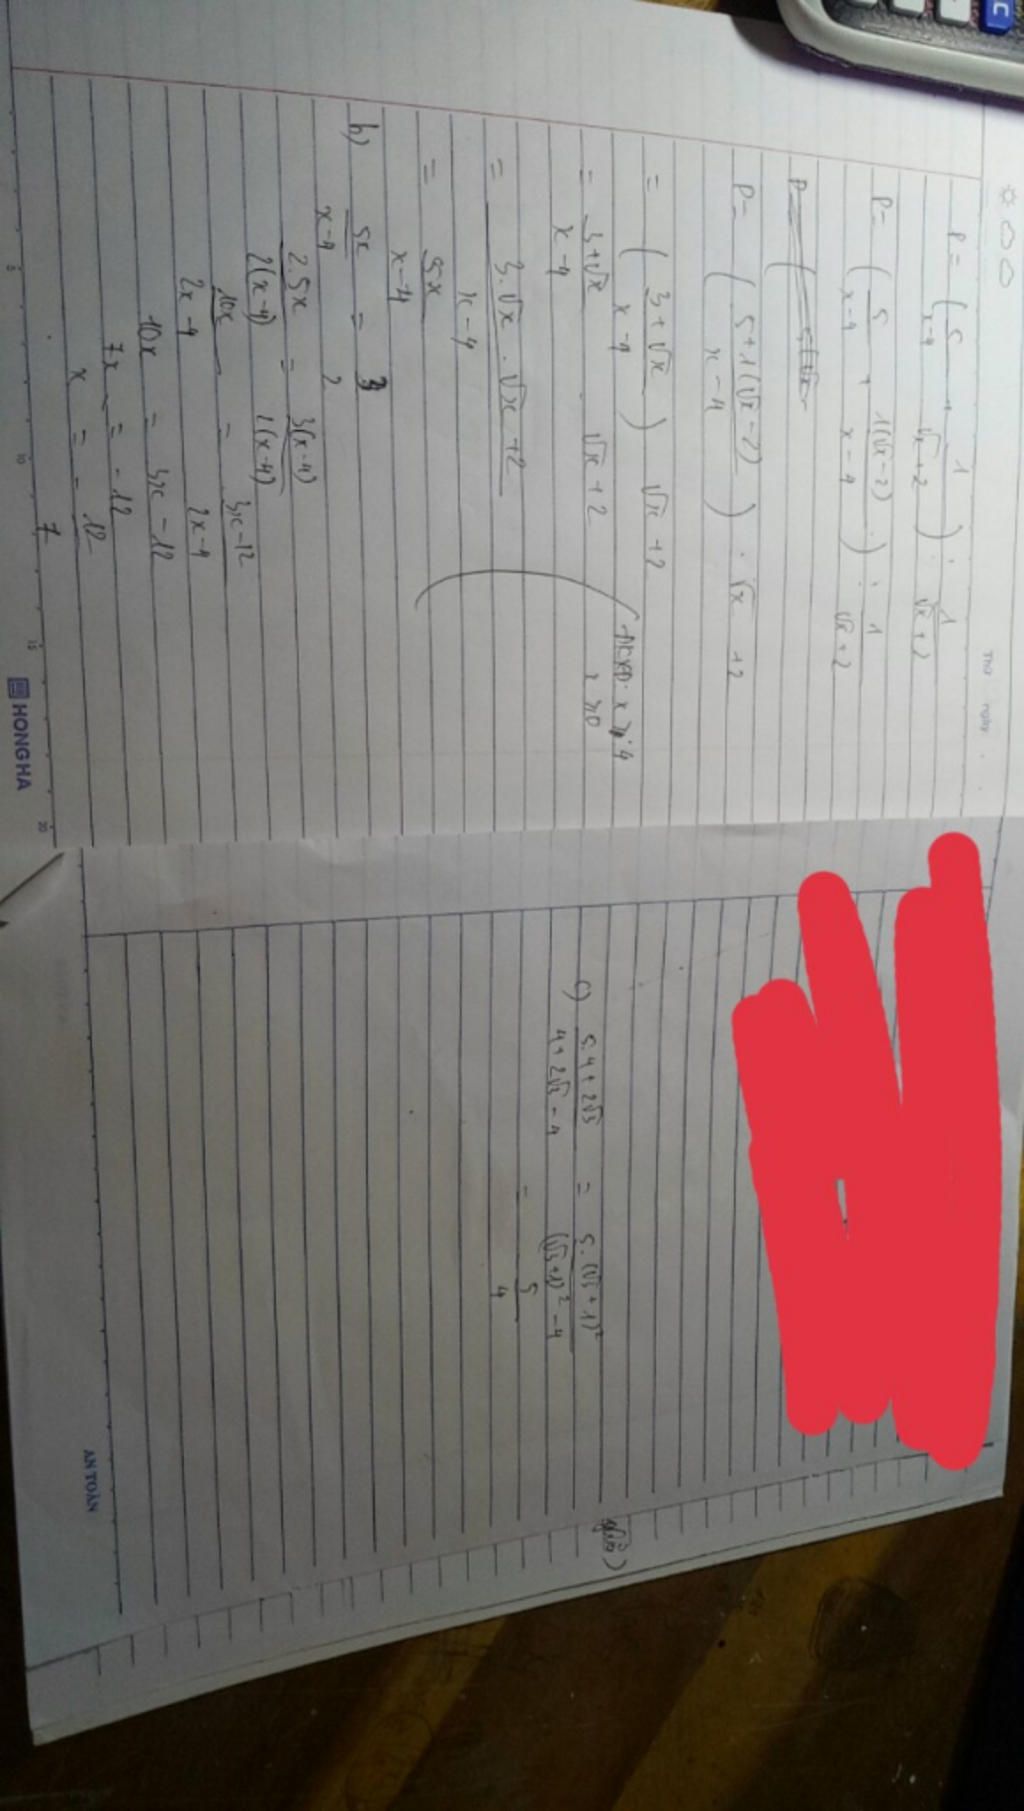 Thứ ngày
P = ( 5/x-4 + 1/√x+2 ) : 1/√x+2
P = ( 5/x-4 + 1(√x-2)/x-4 ) : 1/√x+2
P = ( 5+1(√x-2)/x-4 ) . √x+2
= ( 3+√x/x-4 ) . √x+2
x ≥ 0
= 3+√x/x-4 . √x+2
= 3.√x.√x+2/x-4
= 5x/x-4
b) 5x/x-4 = 3/2
2.5x/2(x-4) = 3(x-4)/2(x-4)
10x/2x-4 = 3x-12/2x-4
10x = 3x-12
7x = -12
x = -12/7
HONG HA
5 10 15 20
c) 5.4+2√3/4+2√3-4 = 5.(√3+1)²/(√3+1)²-4
= 5/4
AN TOÀN